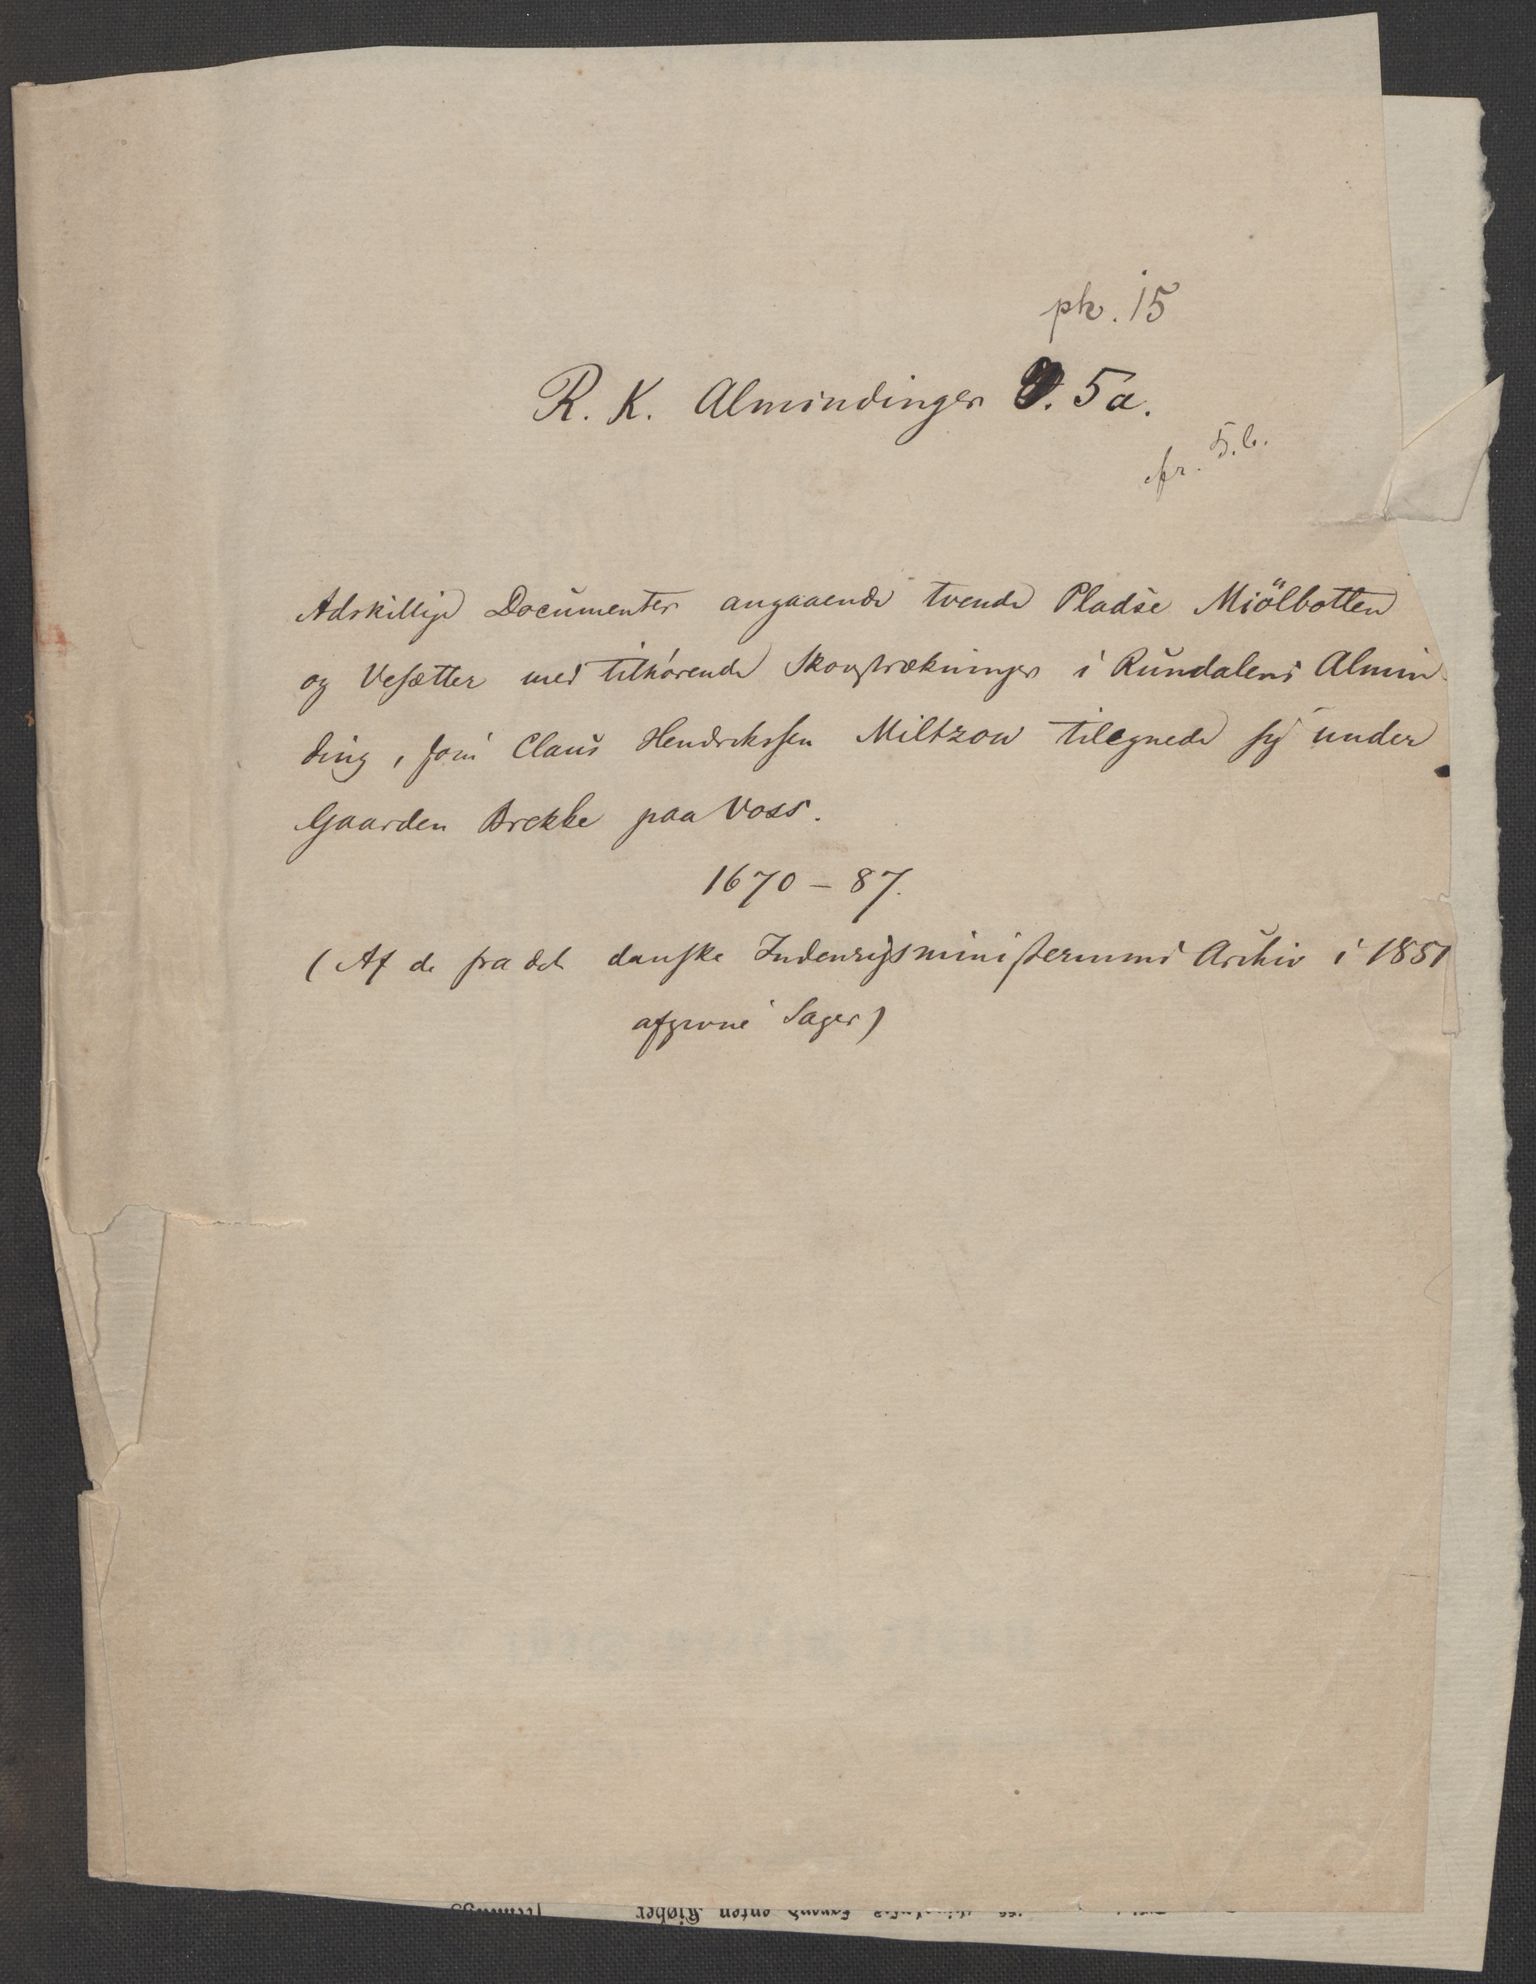 pk. 15
R. K. Almindinger 5a.
cfr. 5.b.
Adskillige Documenter angaaende tvende Pladse Miölbotten
og Vesætter med tilhørende Skovstrækninger i Rundalens Almin
ding, som Claus Hendrikssen Miltzow tilegnede sig under
Gaarden Brekke paa Voss.
1670-87.
(Af de fra det danske Indenrigsministeriums Archiv i 1851
afgivne Sager)